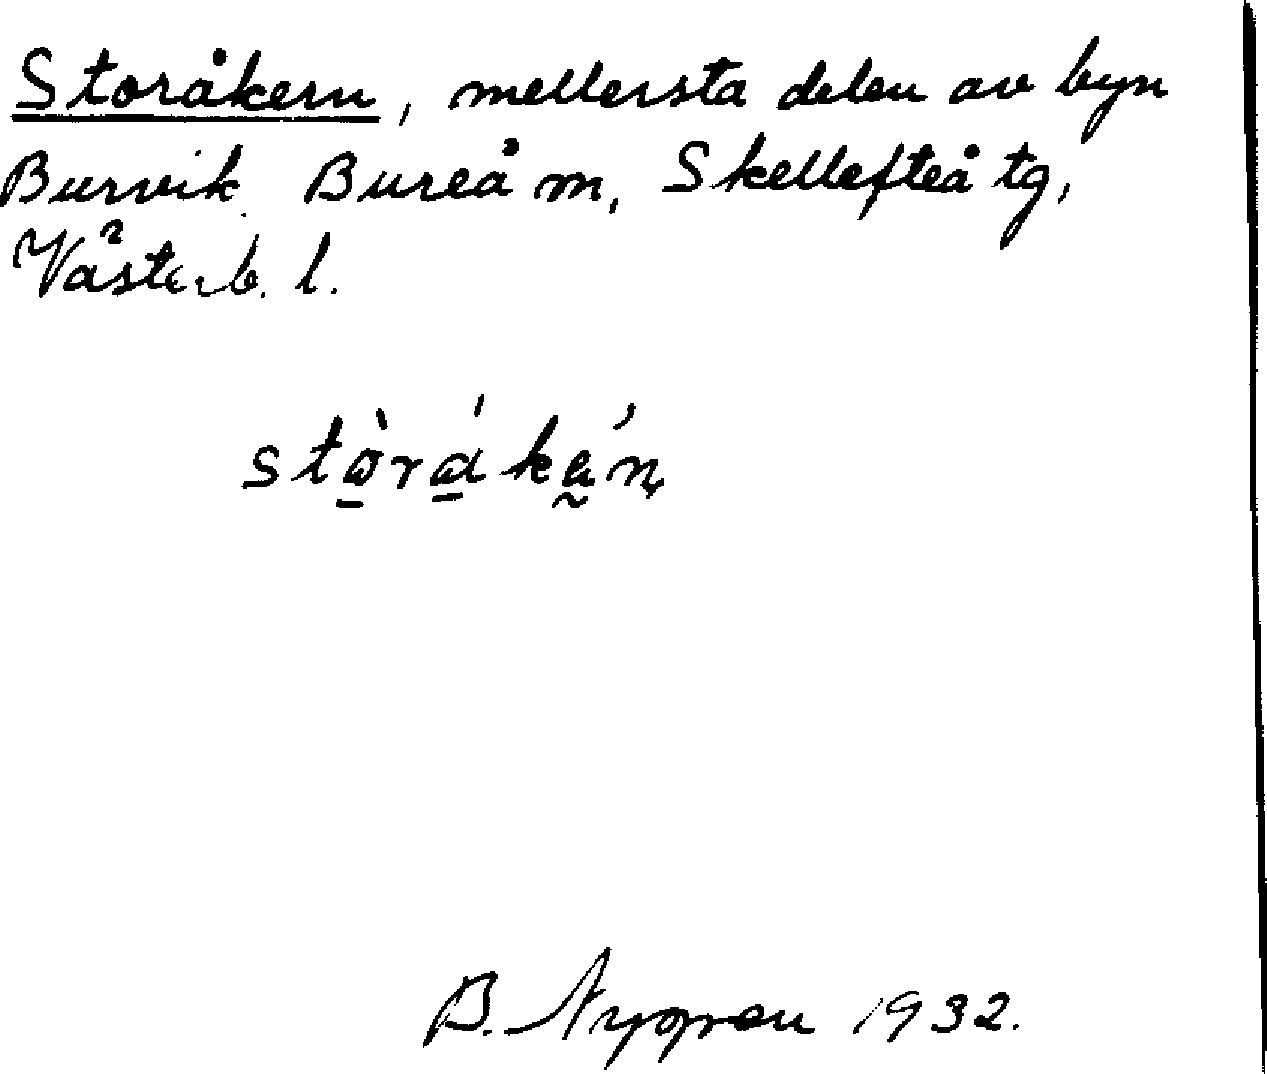 Storåkern, mellersta delen av byn
Burvik Bureå m, Skellefteå tg,
Västerb. l.
B. Nygren 1932.